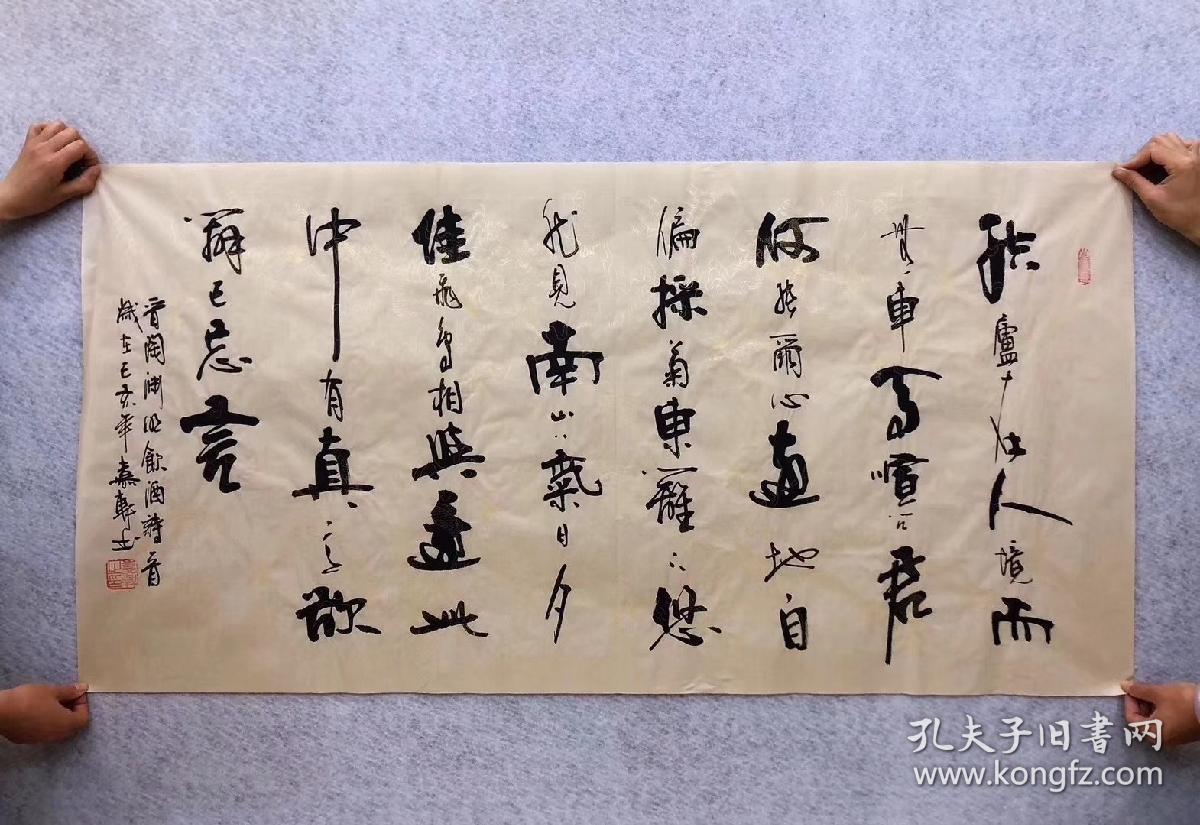 結廬在人境而
無車馬喧問君
何能爾心遠地自
偏採菊東籬下悠
然見南山山氣日夕
佳飛鳥相與還此
中有真意欲
辯已忘言
晉陶渊明飲酒詩一首
歲在己亥年嘉軒书
孔夫子旧书网
www.kongfz.com